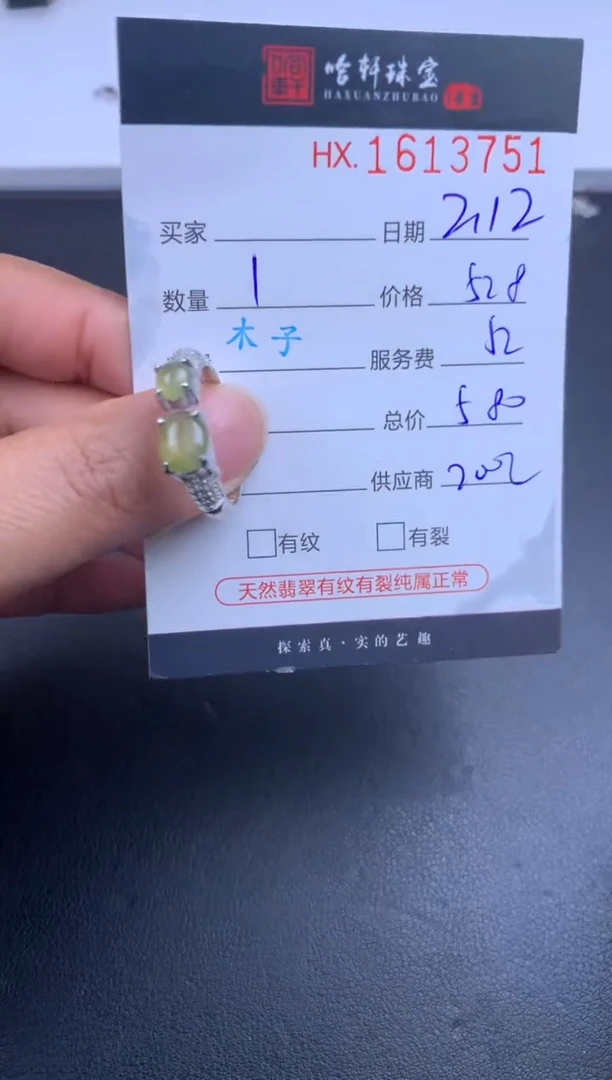 哈轩珠宝
HAXUANZHUBAO
HX.1613751
买家 日期 2.12
数量 1 价格 528
木子
服务费 52
总价 580
供应商
有纹 有裂
天然翡翠有纹有裂纯属正常
探索真·实的艺趣